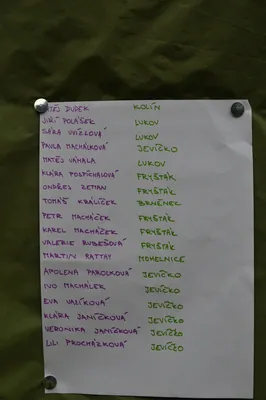 MATĚJ DUDEK KOLÍN
JIŘÍ POLÁŠEK LUKOV
SÁRA LUKOV
PAVLA MACHÁLKOVÁ JEVÍČKO
MATĚJ VÁHALA LUKOV
KLÁRA POSPÍCHALOVÁ FRYŠTÁK
ONDŘEJ ZEMAN FRYŠTÁK
TOMÁŠ KRÁLÍČEK BRNĚNEC
PETR MACHÁČEK FRYŠTÁK
KAREL MACHÁČEK FRYŠTÁK
VALERIE RUBEŠOVÁ FRYŠTÁK
MARTIN RATTAY MOHELNICE
APOLENA PAROLKOVÁ JEVÍČKO
IVO MACHÁLEK JEVÍČKO
EVA VALÍKOVÁ JEVÍČKO
KLÁRA JANÍČKOVÁ JEVÍČKO
VERONIKA JANÍČKOVÁ JEVÍČKO
LILI PROCHÁZKOVÁ JEVÍČKO